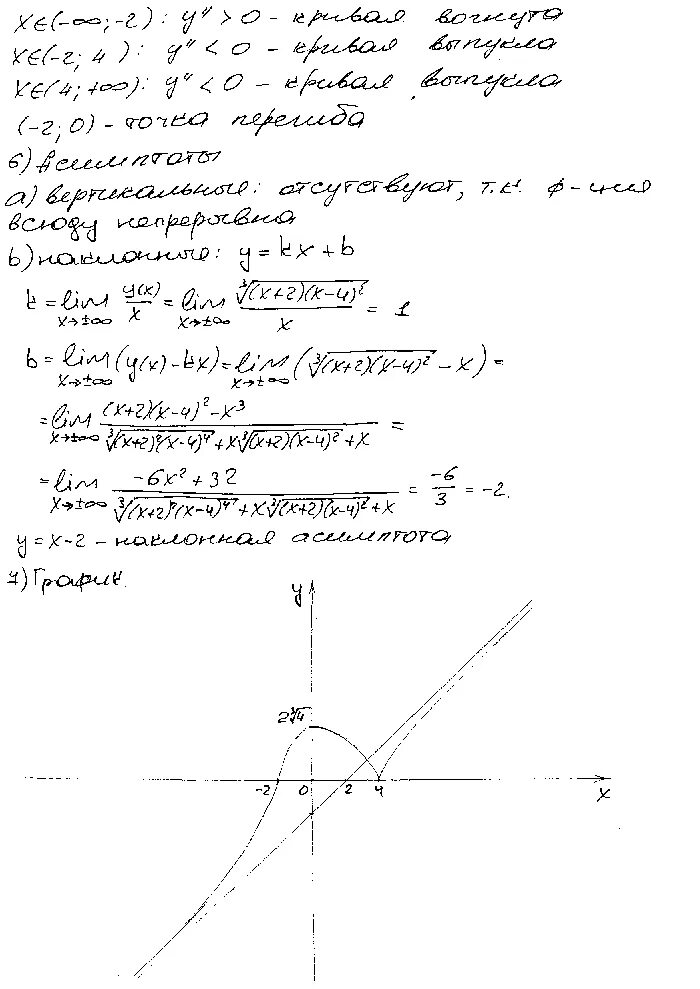 x∈(-∞;-2): y''>0 - кривая вогнута
x∈(-2; 4): y''<0 - кривая выпукла
x∈(4;+∞): y''<0 - кривая выпукла
(-2;0) - точка перегиба
6) Асимптоты
а) вертикальные: отсутствуют, т.к. ф-ция
всюду непрерывна
b) наклонные: y = kx + b
k = lim x→±∞ y(x)/x = lim x→±∞ ∛((x+2)(x-4)²)/x = 1
b = lim x→±∞ (y(x)-kx) = lim x→±∞ (∛((x+2)(x-4)²) - x) =
= lim x→±∞ ((x+2)(x-4)² - x³)/(∛((x+2)²(x-4)⁴) + x∛((x+2)(x-4)²) + x) =
= lim x→±∞ (-6x² + 32)/(∛((x+2)²(x-4)⁴) + x∛((x+2)(x-4)²) + x) = -6/3 = -2.
y = x-2 - наклонная асимптота
7) График.
y
2∛4
-2 0 2 4
x